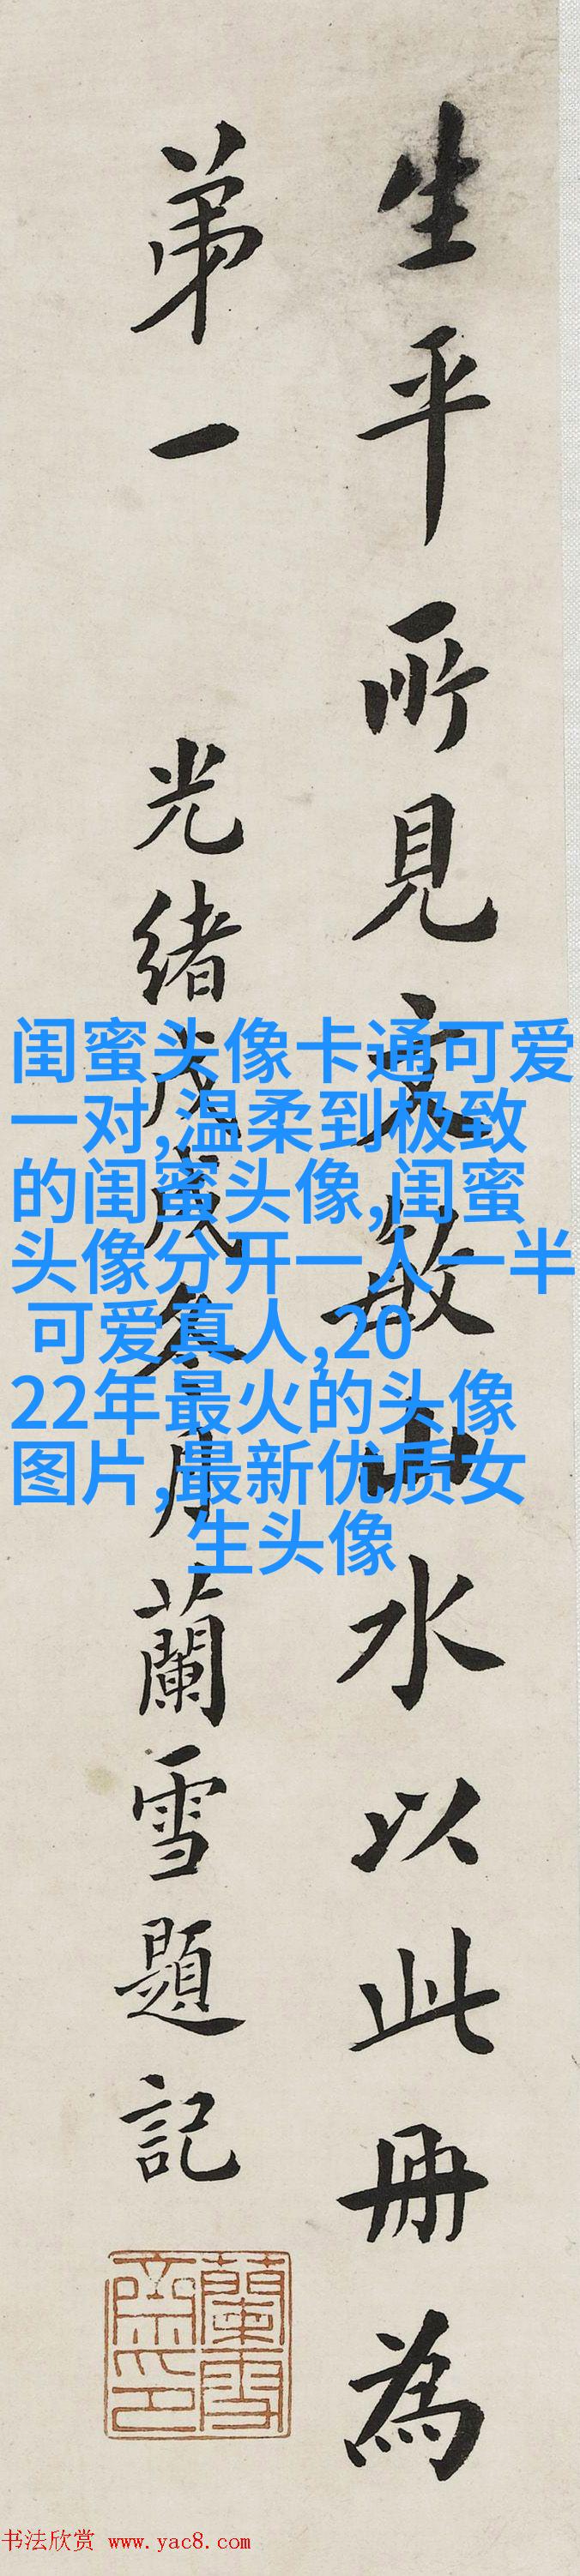 生平所見文敏山水以此册為
弟一
光緒戊戌冬月蘭雪題記
蘭雪
齋印
闺蜜头像卡通可爱
一对,温柔到极致
的闺蜜头像,闺蜜
头像分开一人一半
可爱真人,20
22年最火的头像
图片,最新优质女
生头像
书法欣赏 www.yac8.com